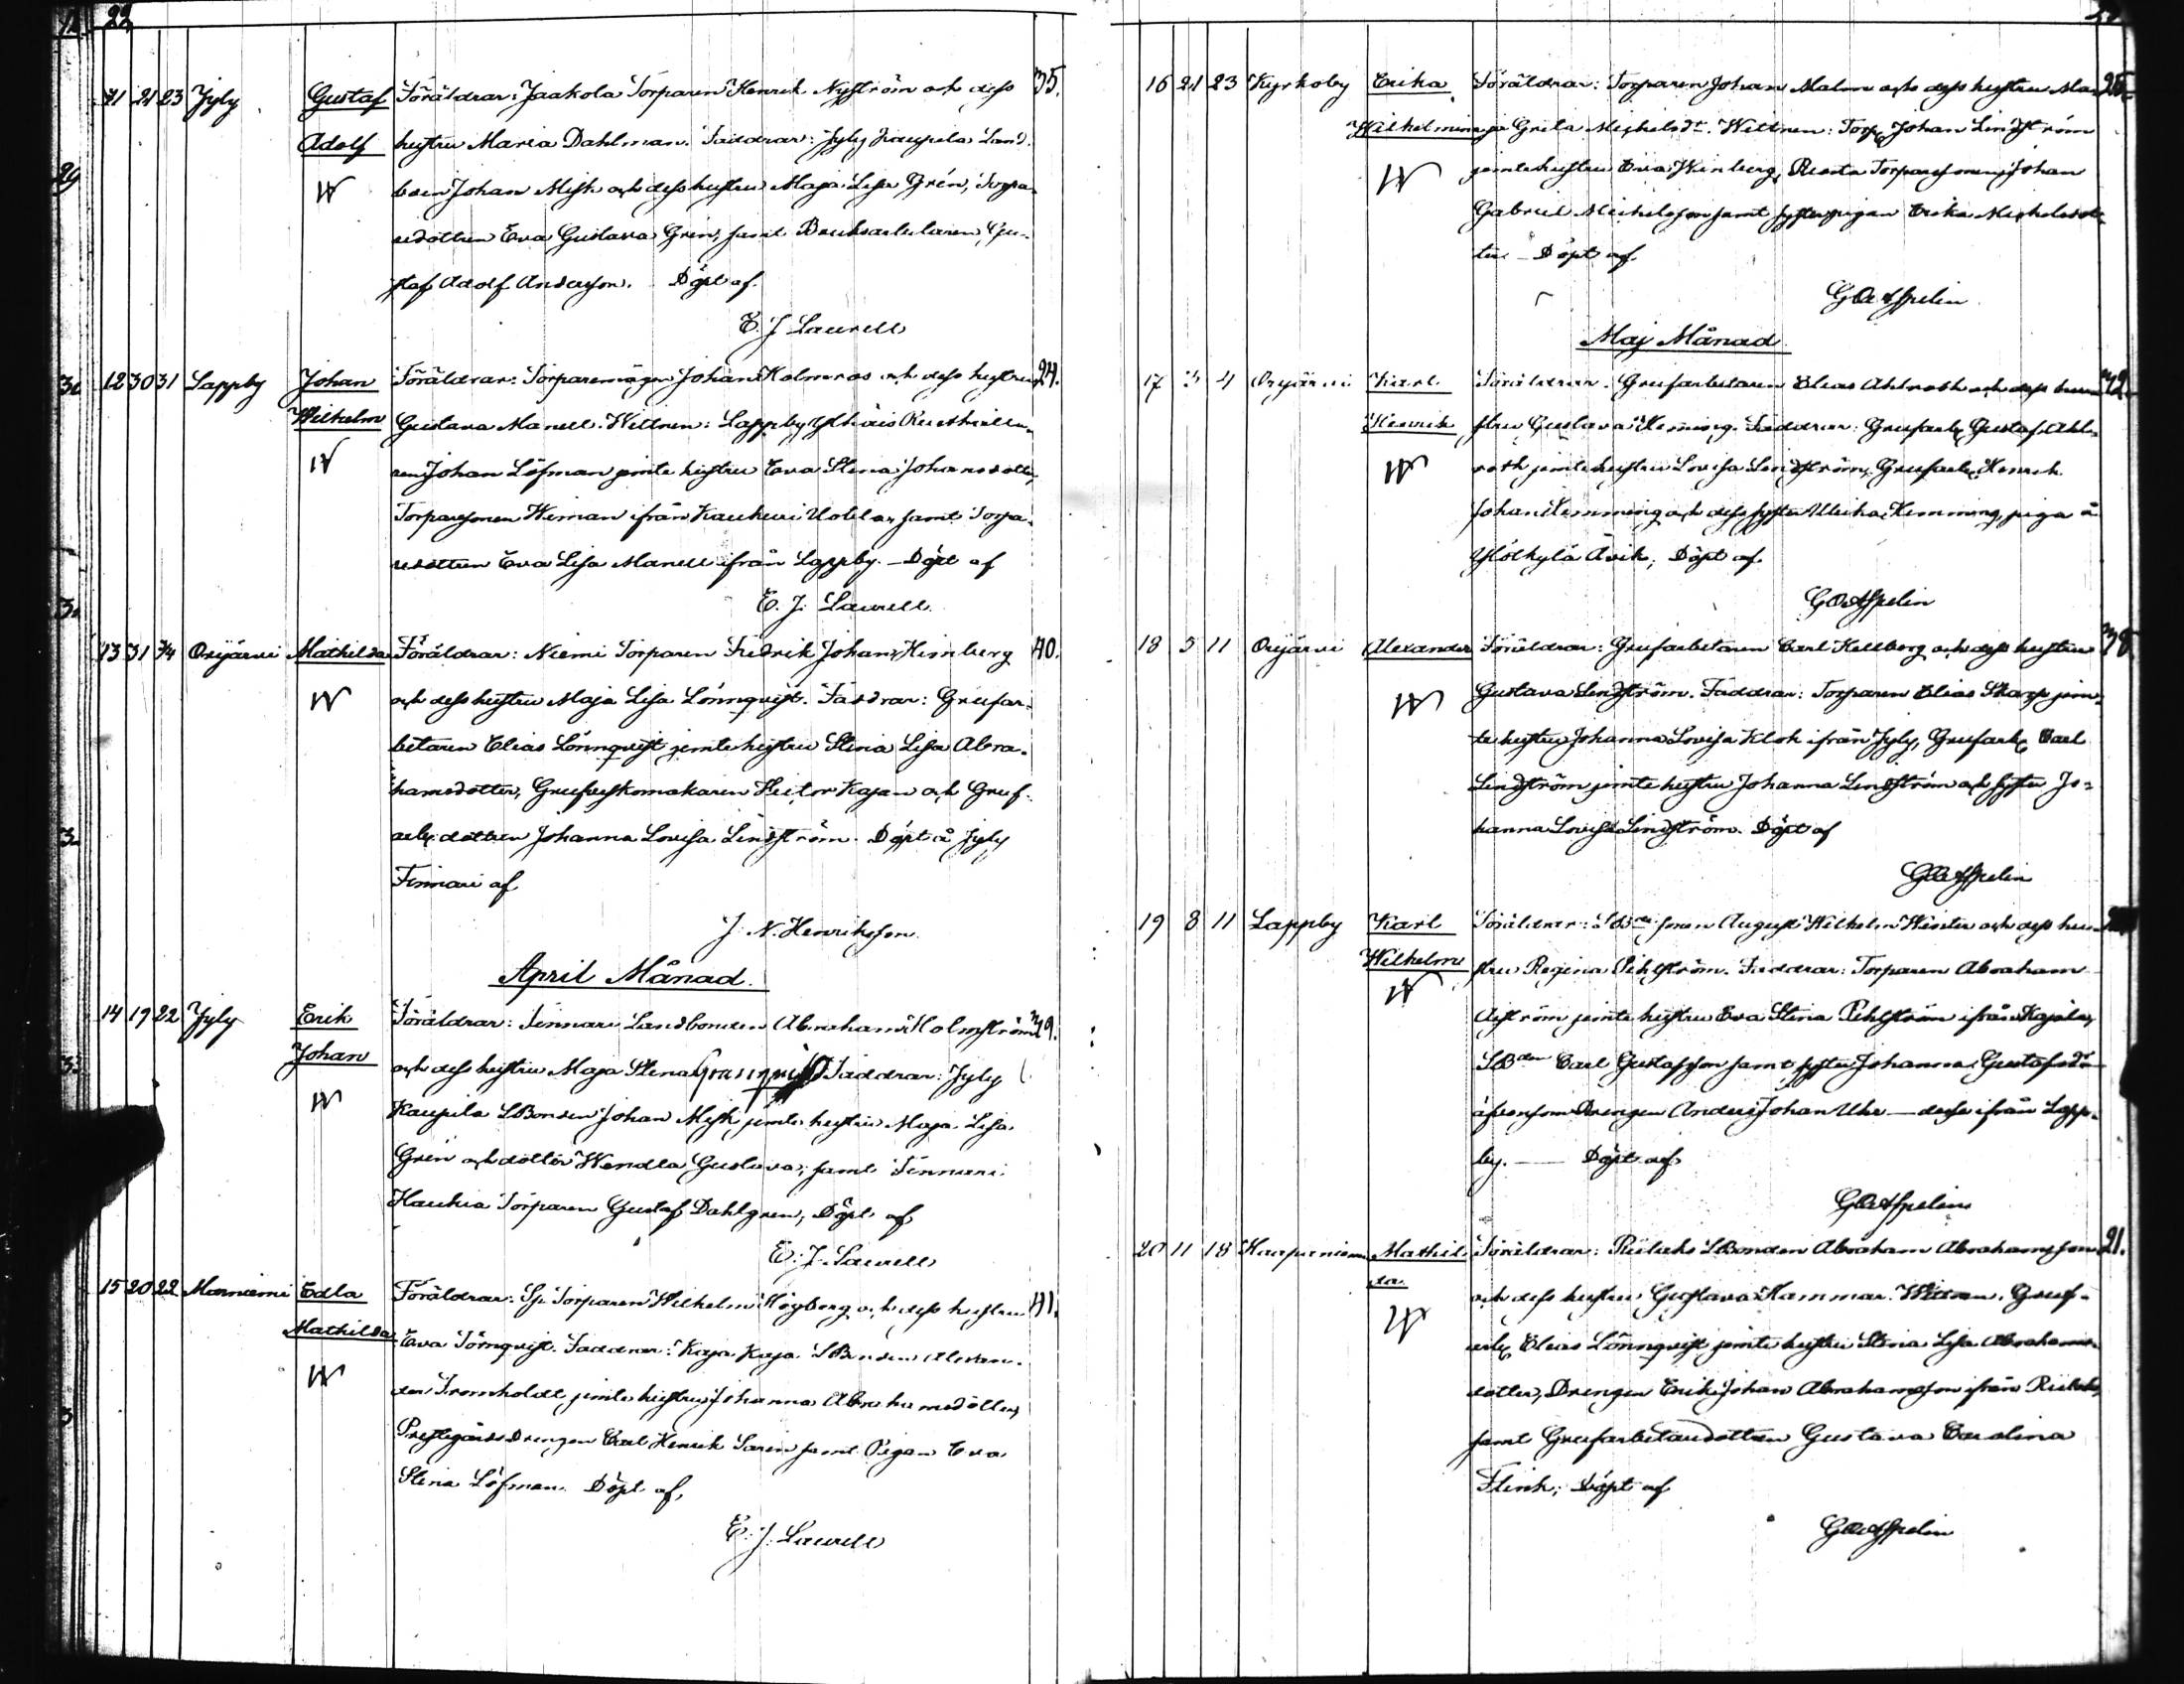 22
11 21 23 Jyly Gustaf Föräldrar: Jaakola Torparen Henrik Nyström och dess 35.
Adolf hustru Maria Dahlman. Faddrar: Jyly Kaupila Land-
bon Johan Misk och dess hustru Maja Lisa Grén, Torpa-
redottren Eva Gustava Grén, samt Bruksarbetaren Gu-
staf Adolf Andersson. Döpt af.
E. J. Laurell
12 30 31 Lappby Johan Föräldrar: Torparemågen Johan Holmroos och dess hustru 24.
Wilhelm Gustava Manell. Wittnen: Lappby Ylhäis Rusthålla-
ren Johan Löfman jemte hustru Eva Stina Johansdotter,
Torparesonen Wiman ifrån Kaukuri Uotila, samt Torpa-
redottren Eva Lisa Manell ifrån Lappby. – Döpt af
E. J. Laurell.
13 31 3/4 Orijärvi Mathilda Föräldrar: Niemi Torparen Fredrik Johan Heinberg 40.
och dess hustru Maja Lisa Lönnqvist. Faddrar: Grufar-
betaren Elias Lönnqvist jemte hustru Stina Lisa Abra-
hamsdotter, Grufveskomakaren Hector Kajan och Gruf-
arb. dottren Johanna Lovisa Lindström. Döpt å Jyly
Finnari af
J. N. Henriksson
April Månad.
14 19 22 Jyly Erik Föräldrar: Finnari Landbonden Abraham Holmström 39.
Johan och dess hustru Maja Stina Granqvist Faddrar: Jyly
Kaupila LBonden Johan Misk, jemte hustru Maja Lisa
Grén och dotter Wendla Gustava, samt Finnari
Haukia Torparen Gustaf Dahlgren, Döpt af
E. J. Laurell
15 20 22 Marniemi Edla Föräldrar: Sp. Torparen Wilhelm Högberg och dess hustru 41.
Mathilda Eva Törnqvist. Faddrar: Kaja Kaja LBonden Alexan-
der Fromholdt, jemte hustru Johanna Abrahamsdotter,
Prestgårds Drengen Carl Henrik Sarén samt Pigan Eva
Stina Löfman. Döpt af,
E. J. Laurell
16 21 23 Kyrkoby Erika Föräldrar: Torparen Johan Malm och dess hustru Ma- 25.
Wilhelmina ja Greta Michelsdr. Wittnen: Torp. Johan Lindström
jemte hustru Eva Winberg, Torparesonen Johan
Gabriel Michelsson samt syster pigan Erika Michelsdot-
ter – Döpt af
G O Aspelin
Maj Månad
17 3 4 Orijärvi Karl Föräldrar: Grufarbetaren Elias Ahlroth och dess hu- 42.
Henrik stru Gustava Heming. Faddrar: Grufarb. Gustaf Ahl-
roth jemte hustru Lovisa Lindström, Grufarb. Henrik
Johan Hemming och dess syster Ulrika Hemming, piga å
Ylökylä Avik; Döpt af
G O Aspelin
18 5 11 Orijärvi Alexander Föräldrar: Grufarbetaren Carl Hellberg och dess hustru 38.
Gustava Lindström. Faddrar: Torparen Elias Skarp jem-
te hustru Johanna Lovisa Klok ifrån Jyly, Grufarb. Carl
Lindström jemte hustru Johanna Lindström och syster Jo-
hanna Lovisa Lindström. Döpt af
G O Aspelin
19 8 11 Lappby Karl Föräldrar: sonen August Wilhelm Winter och dess hu-
Wilhelm stru Regina Pihlström. Faddrar: Torparen Abraham
Äiström jemte hustru Eva Stina Pihlström ifrån Kajala,
LBden Carl Gustafsson samt syster Johanna Gustafsdr
äfvensom Drengen Anders Johan Uhr – desse ifrån Lapp-
by. – Döpt af
G O Aspelin
20 11 18 Haapaniemi Mathil- Föräldrar: Riilaks LBonden Abraham Abrahamsson 21.
da. och dess hustru Gustava Hammar. Wittnen: Gruf-
arb. Elias Lönnqvist jemte hustru Stina Lisa Abrahams-
dotter, Drengen Erik Johan Abrahamsson ifrån Riilaks,
samt Grufarbetaredottren Gustava Carolina
Flink; Döpt af
G O Aspelin